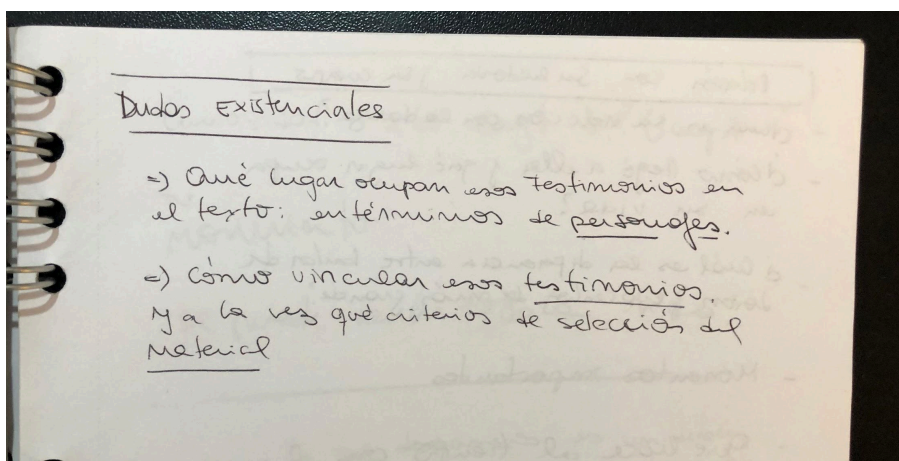 Dudas Existenciales
=) Qué lugar ocupan esos testimonios en
el texto: en términos de personajes.
=) Cómo vincular esos testimonios.
y a la vez qué criterios de selección del
Material
- Momentos importantes